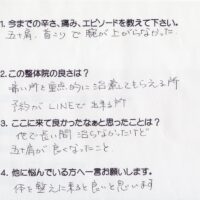 1. 今までの辛さ、痛み、エピソードを教えて下さい。
五十肩、首こりで腕が上がらなかった
2. この整体院の良さは？
痛い所を重点的に治療してもらえる所
予約がLINEで出来る所
3. ここに来て良かったなぁと思ったことは？
他で長い間治らなかったけど
五十肩が良くなったこと
4. 他に悩んでいる方へ一言お願いします。
体を整えに来ると良いと思います